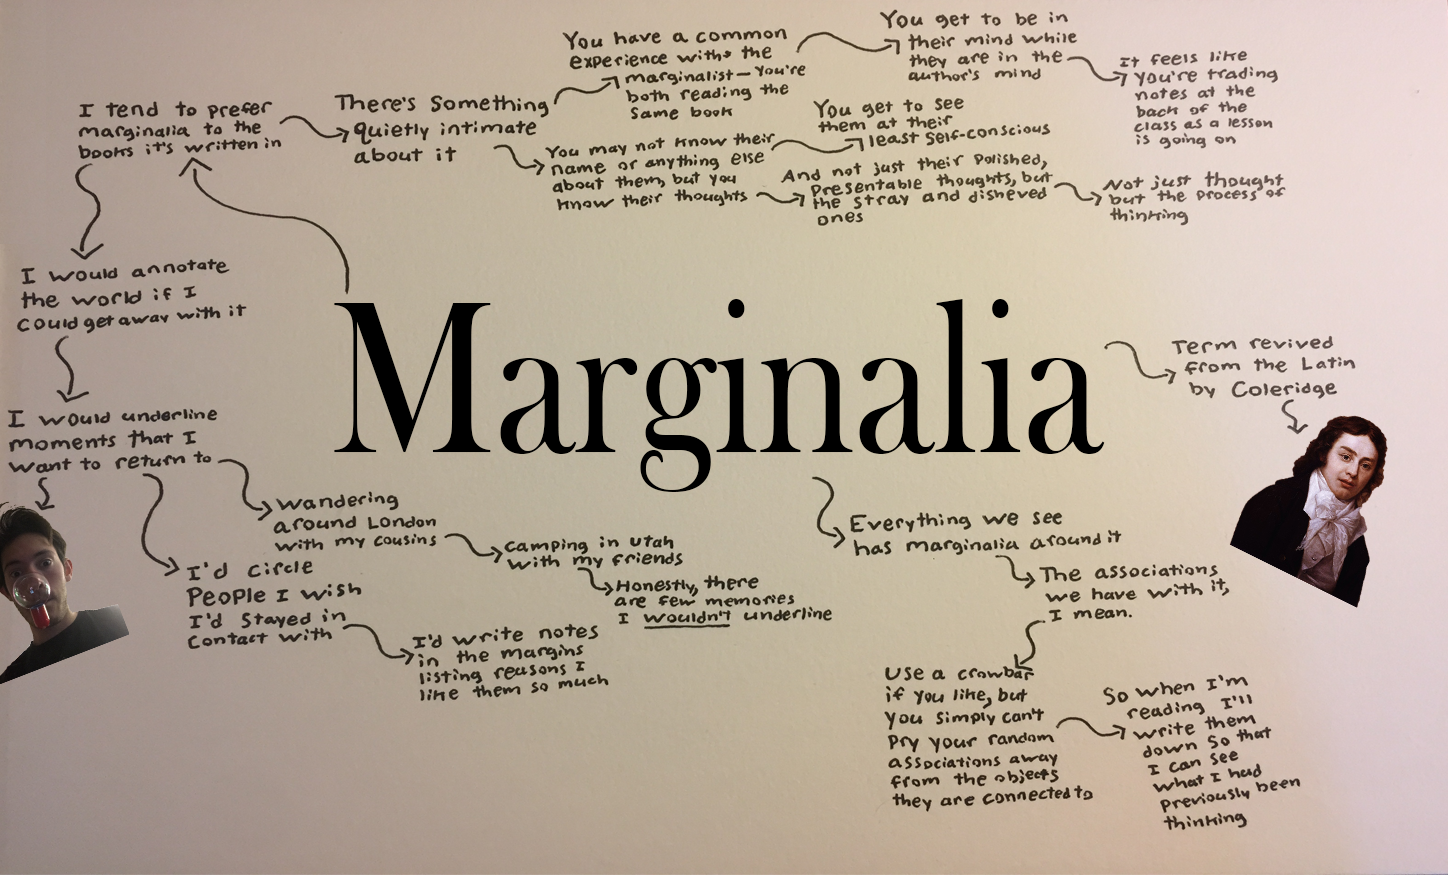 I tend to prefer
marginalia to the
books it's written in
There's something
quietly intimate
about it
You have a common
experience with the
marginalist — You're
both reading the
same book
You get to be in
their mind while
they are in the
author's mind
It feels like
you're trading
notes at the
back of the
class as a lesson
is going on
You may not know their
name or anything else
about them, but you
know their thoughts
You get to see
them at their
least self-conscious
And not just their polished,
presentable thoughts, but
the stray and disheved
ones
Not just thought
but the process of
thinking
I would annotate
the world if I
could get away with it
I would underline
moments that I
want to return to
Wandering
around London
with my cousins
camping in Utah
with my friends
Honestly, there
are few memories
I wouldn't underline
I'd circle
People I wish
I'd stayed in
contact with
I'd write notes
in the margins
listing reasons I
like them so much
Marginalia
Term revived
from the Latin
by Coleridge
Everything we see
has marginalia around it
The associations
we have with it,
I mean.
Use a crowbar
if you like, but
you simply can't
pry your random
associations away
from the objects
they are connected to
So when I'm
reading I'll
write them
down so that
I can see
what I had
previously been
thinking